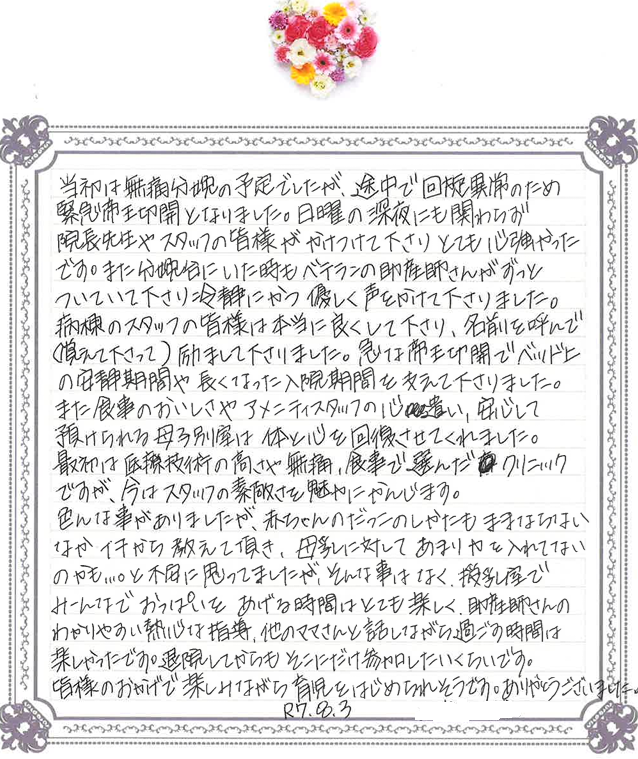 当初は無痛分娩の予定でしたが、途中で回旋異常のため
緊急帝王切開となりました。日曜の深夜にも関わらず
院長先生やスタッフの皆様がかけつけて下さりとても心強かった
です。また分娩台にいた時もベテランの助産師さんがずっと
ついていて下さり冷静にかつ優しく声をかけて下さりました。
病棟のスタッフの皆様は本当に良くして下さり、名前を呼んで
(覚えて下さって)励まして下さりました。急な帝王切開でベッド上
の安静期間や長くなった入院期間を支えて下さりました。
また食事のおいしさやアメニティスタッフの心遣い、安心して
預けられる母子別室は体と心を回復させてくれました。
最初は医療技術の高さや無痛、食事で選んだクリニック
ですが、今はスタッフの素敵さを魅力にかんじます。
色んな事がありましたが、赤ちゃんのだっこのしかたもままならない
なかイチから教えて頂き、母乳に対してあまり力を入れてない
のかも...。と不安に思ってましたが、そんな事はなく、授乳室で
みーんなでおっぱいをあげる時間はとても楽しく、助産師さんの
わかりやすい熱心な指導、他のママさんと話しながら過ごす時間は
楽しかったです。退院してからもそこにだけ参加したいくらいです。
皆様のおかげで楽しみながら育児をはじめられそうです。ありがとうございました。
R7.8.3